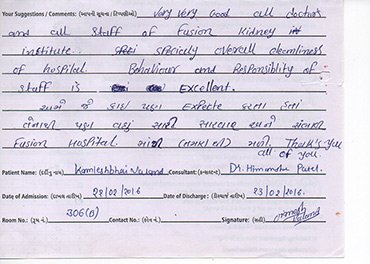 Your Suggestions / Comments: (આપની સૂચના / ટિપ્પણીઓ) Very Very Good all doctors
and all staff of Fusion Kidney
institute. specialy overall cleanliness
of hospital. Behaviour and Responsiblity of
staff is Excellent.
અમે જે કાંઇ પણ Expecte કરતા હતા
તેનાથી પણ વધુ સારી સારવાર અમને
Fusion Hospital. માંથી મળી. Thank's you
all of you.
Patient Name: (દર્દીનું નામ) Kamleshbhai Valand Consultant: Dr. Himanshu Patel.
Date of Admission: (દાખલ તારીખ) 22/02/2016 Date of Discharge: 23/02/2016.
Room No.: (રૂમ નં.) 306(0) Contact No.: Signature: (સહી)